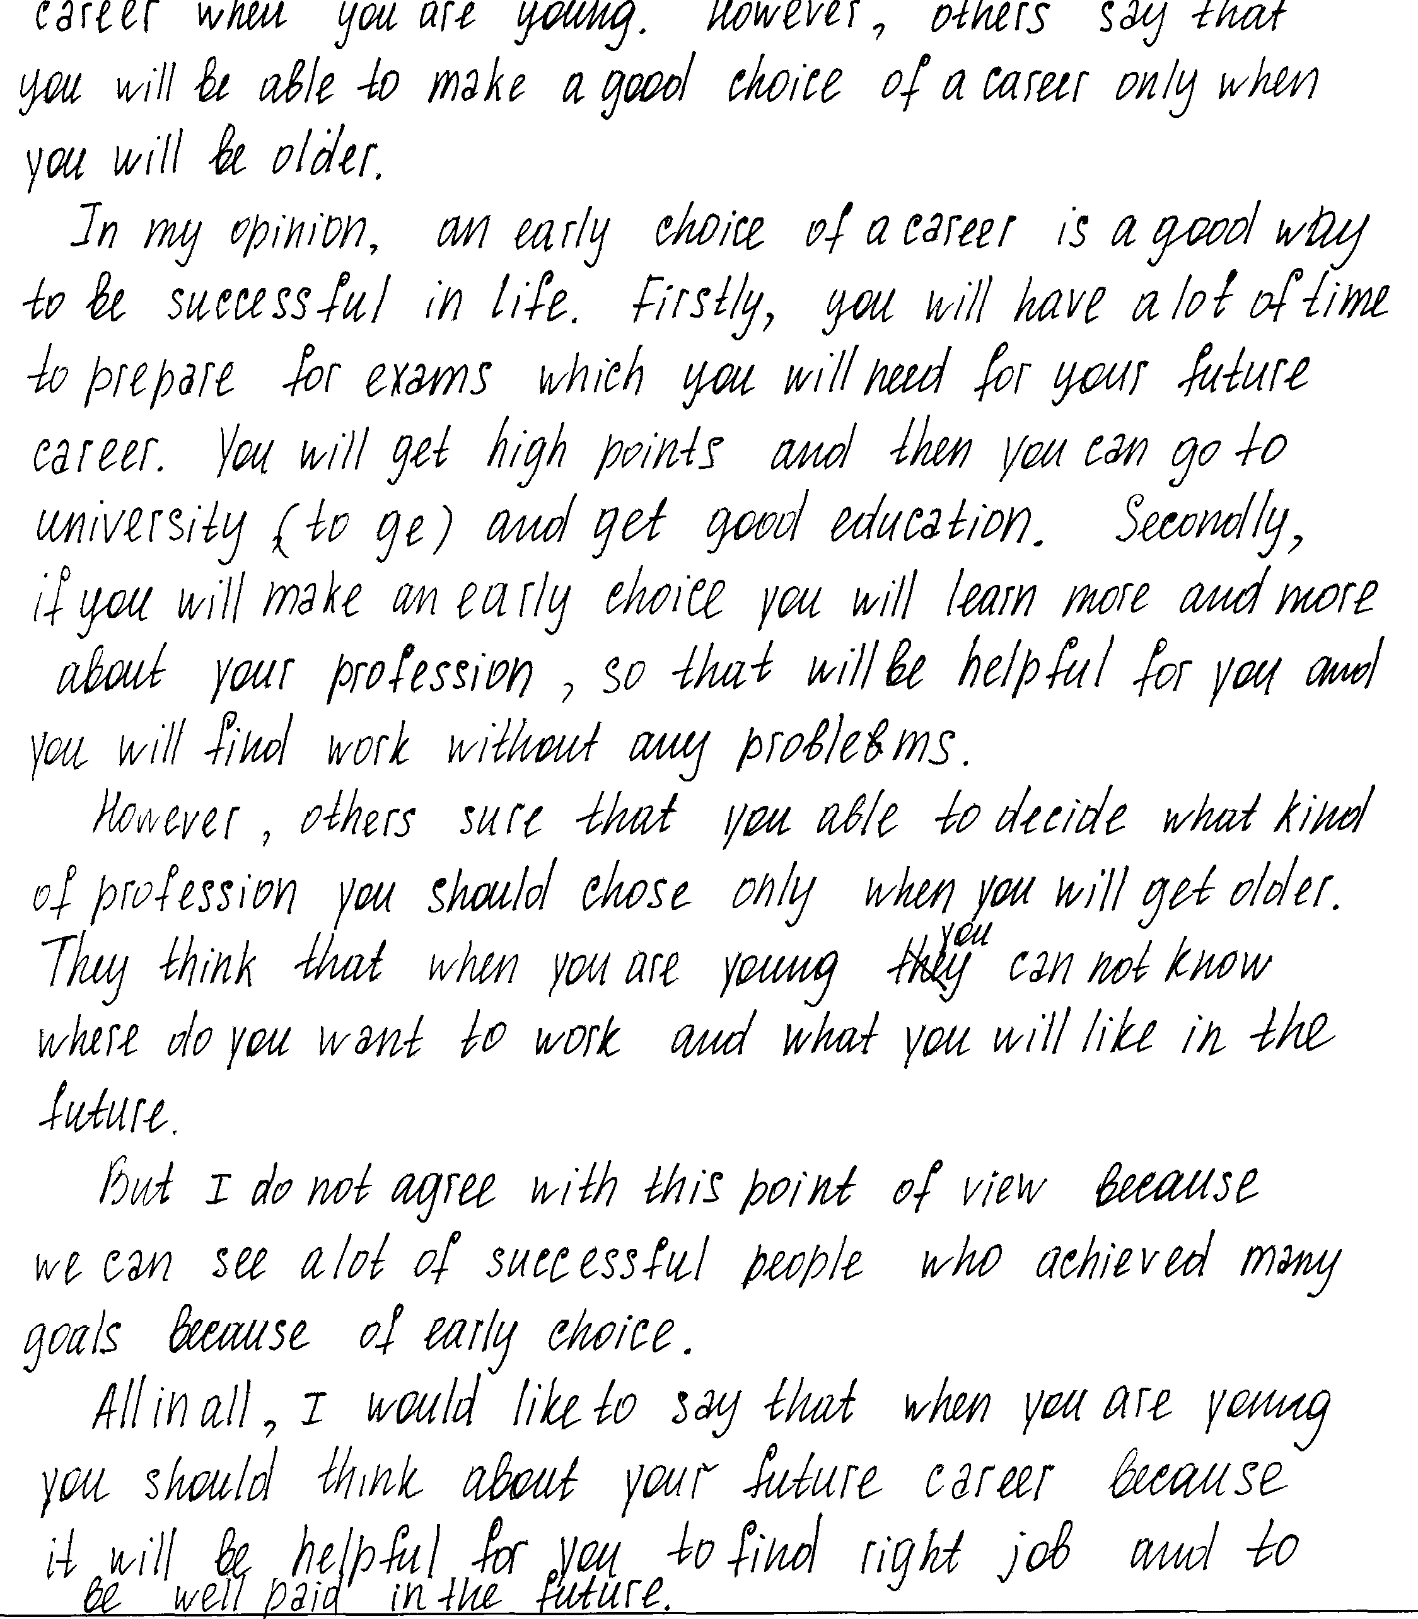 career when you are young. However, others say that
you will be able to make a good choice of a career only when
you will be older.
In my opinion, an early choice of a career is a good way
to be successful in life. Firstly, you will have a lot of time
to prepare for exams which you will need for your future
career. You will get high points and then you can go to
university (to ge) and get good education. Secondly,
if you will make an early choice you will learn more and more
about your profession, so that will be helpful for you and
you will find work without any problems.
However, others sure that you able to decide what kind
of profession you should chose only when you will get older.
They think that when you are young you can not know
where do you want to work and what you will like in the
future.
But I do not agree with this point of view because
we can see a lot of successful people who achieved many
goals because of early choice.
All in all, I would like to say that when you are young
you should think about your future career because
it will be helpful for you to find right job and to
be well paid in the future.